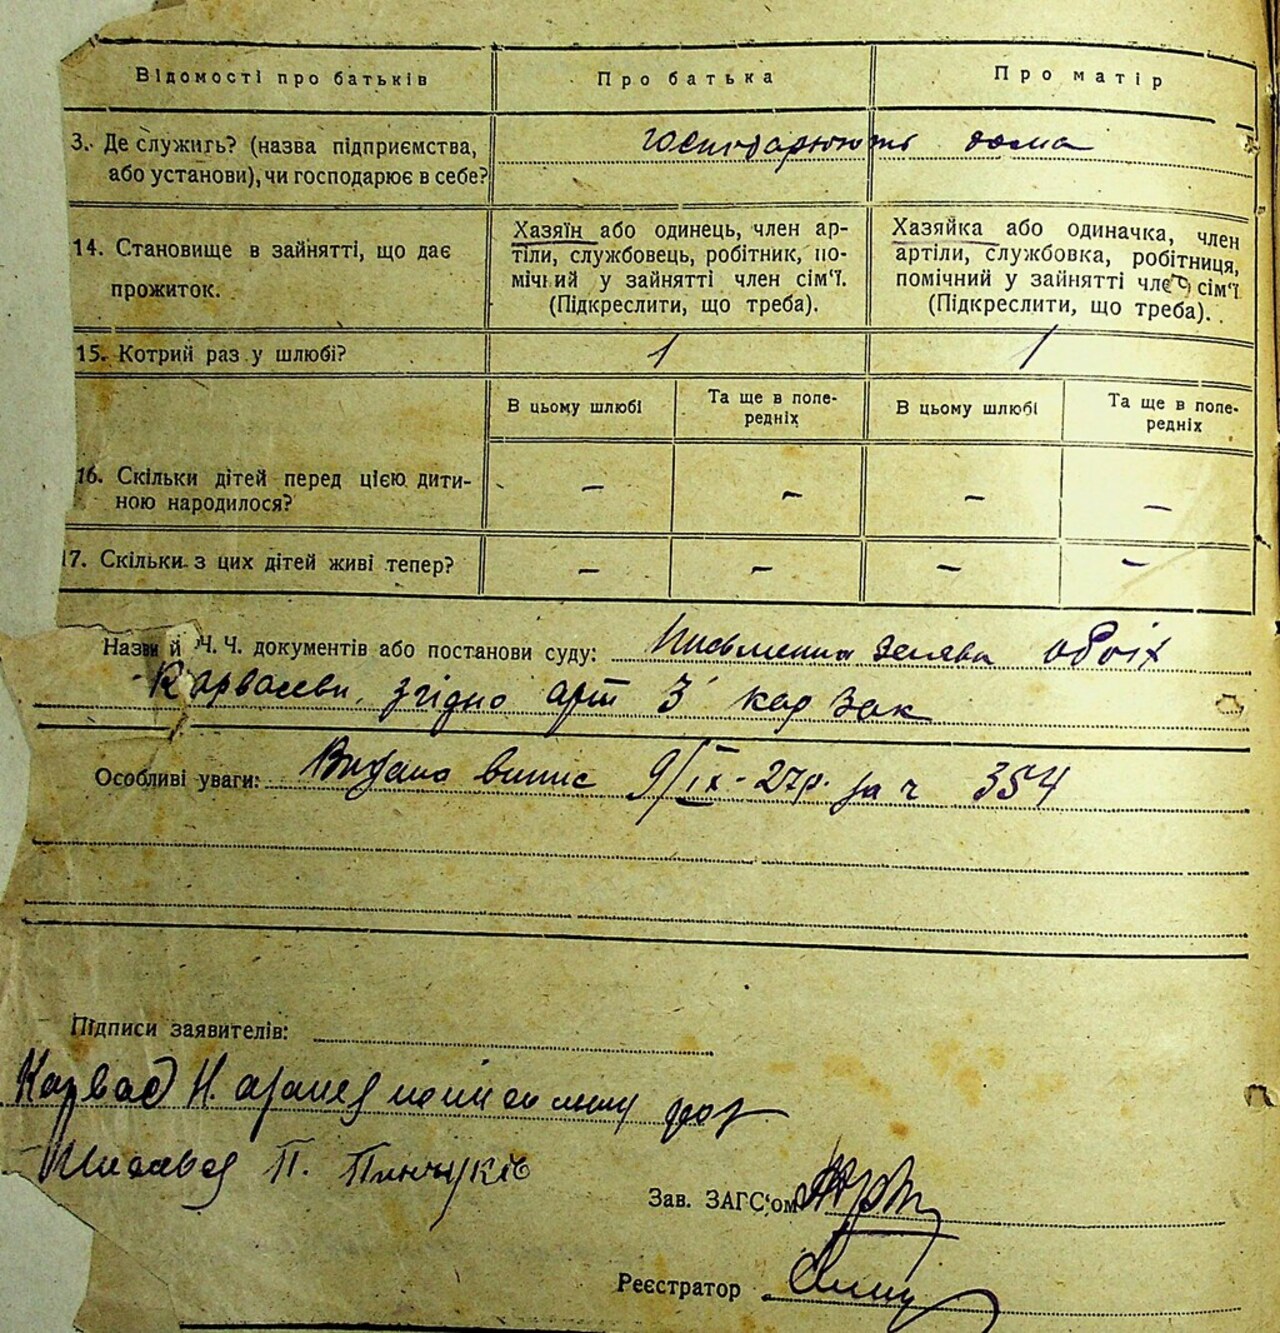 Відомості про батьків Про батька Про матір
3. Де служить? (назва підприємства, господарюють дома
або установи), чи господарює в себе?
14. Становище в зайнятті, що дає
прожиток.
Хазяїн або одинець, член ар-
тіли, службовець, робітник, по-
мічний у зайнятті член сім'ї.
(Підкреслити, що треба).
Хазяйка або одиначка, член
артіли, службовка, робітниця,
помічний у зайнятті член сім'ї
(Підкреслити, що треба).
15. Котрий раз у шлюбі? 1 1
В цьому шлюбі Та ще в попе-
редніх В цьому шлюбі Та ще в попе-
редніх
16. Скільки дітей перед цією дити-
ною народилося? – – – –
17. Скільки з цих дітей живі тепер? – – – –
Назви й Ч. Ч. документів або постанови суду: Письменна заява обоіх
згідно арт 3 код зак
Особливі уваги: Видано випис 9/ІХ-27р. за ч 354
Підписи заявителів:
Карвад Н.
П. Пинчуків
Зав. ЗАГС'ом
Реєстратор